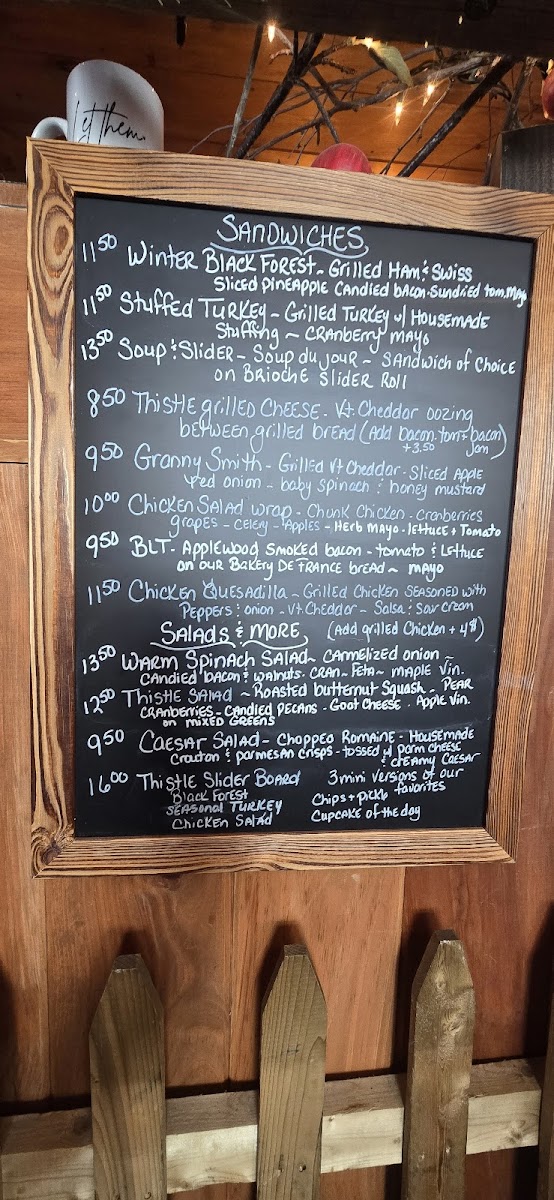 let them
SANDWICHES
11 50 Winter Black Forest - Grilled Ham & Swiss
Sliced pineapple candied bacon - sundried tom. mayo
11 50 Stuffed Turkey ~ Grilled Turkey w/ Housemade
Stuffing ~ cranberry mayo
13 50 Soup & Slider - Soup du jour - Sandwich of choice
on Brioche Slider Roll
8 50 Thistle grilled Cheese - Vt. Cheddar oozing
between grilled bread (Add bacon. tom + bacon
+3.50 jam)
9 50 Granny Smith - Grilled Vt Cheddar - Sliced Apple
red onion - baby spinach & honey mustard
10 00 Chicken Salad wrap - Chunk Chicken - cranberries
grapes - celery - Apples - Herb mayo - lettuce + Tomato
9 50 BLT - Applewood smoked bacon - tomato & lettuce
on our Bakery De France bread ~ mayo
11 50 Chicken Quesadilla - Grilled Chicken seasoned with
Peppers & onion - Vt. Cheddar - Salsa & Sour Cream
SALADS & MORE (Add grilled Chicken + 4$)
13 50 Warm Spinach Salad ~ Carmelized onion ~
Candied bacon & walnuts. Cran - Feta ~ maple Vin.
12 50 Thistle Salad ~ Roasted butternut Squash - Pear
Cranberries - Candied Pecans - Goat Cheese - Apple Vin.
on mixed greens
9 50 Caesar Salad - Chopped Romaine - Housemade
Crouton & parmesan crisps - tossed w/ parm cheese
& creamy Caesar
16 00 Thistle Slider Board 3 mini versions of our
favorites
Black Forest
Seasonal Turkey Chips + pickle
Chicken Salad Cupcake of the day